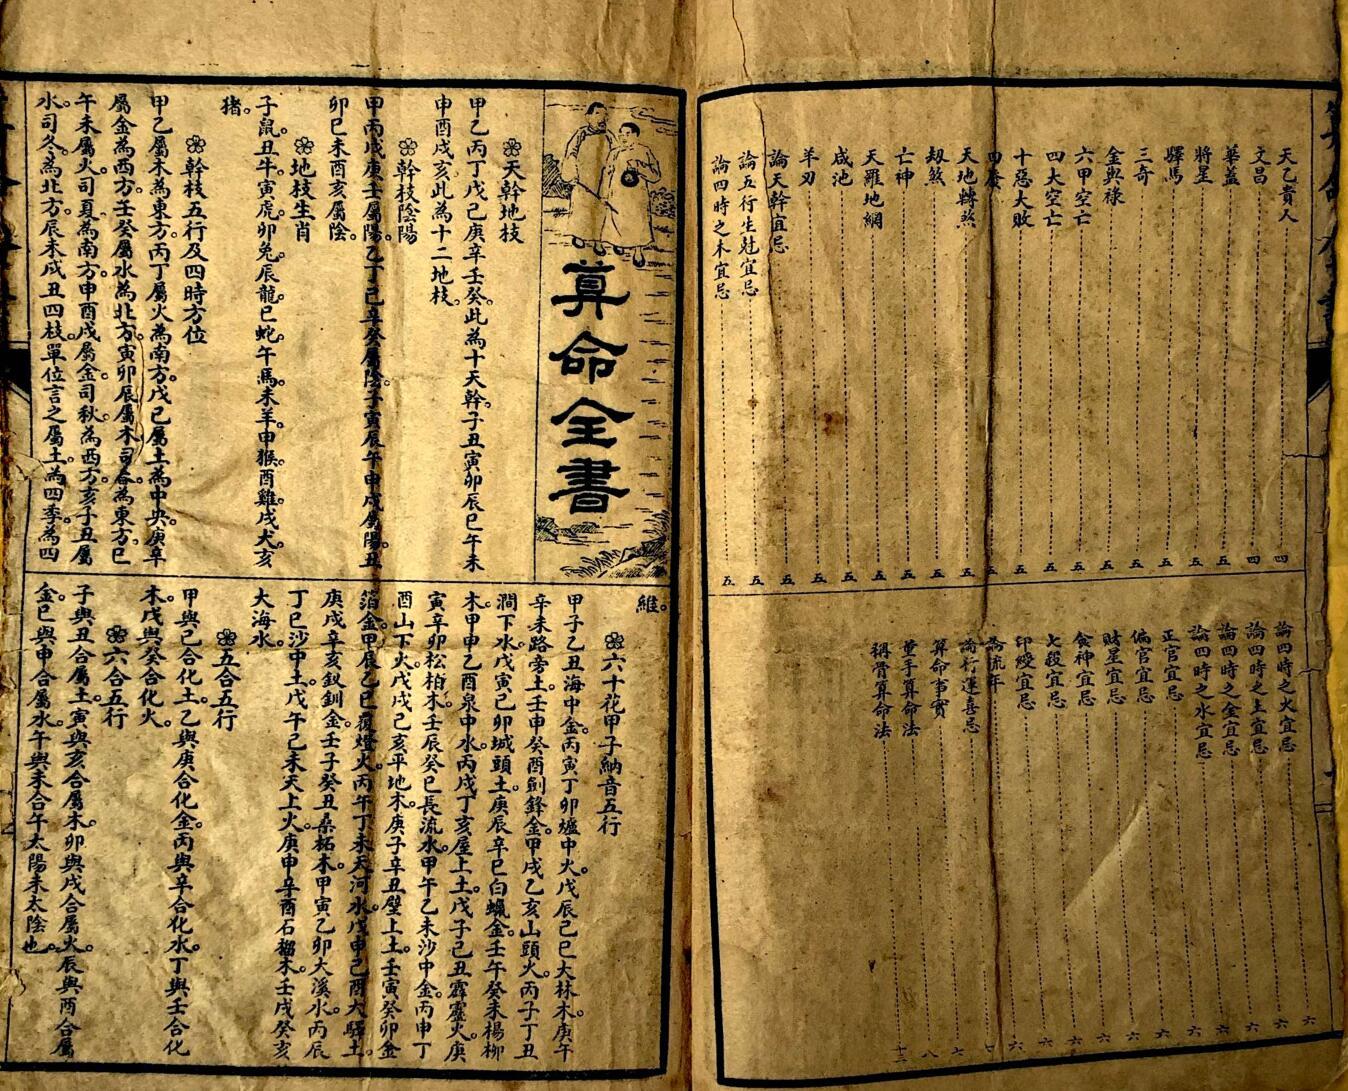 天乙貴人 四
文昌 四
華蓋 五
將星 五
驛馬 五
三奇 五
金與祿 五
六甲空亡 五
四大空亡 五
十惡大敗 五
四廢
天地轉煞 五
劫煞 五
亡神 五
天羅地網 五
咸池 五
羊刃 五
論天幹宜忌 五
論五行生尅宜忌 五
論四時之木宜忌 五
論四時之火宜忌 六
論四時之土宜忌 六
論四時之金宜忌 六
論四時之水宜忌 六
正官宜忌 六
偏官宜忌 六
財星宜忌 六
食神宜忌 六
七殺宜忌 六
印綬宜忌 六
論流年
論行運喜忌 七
算命事實 八
童子算命法
稱骨算命法 十二
算命全書
天幹地枝
甲乙丙丁戊己庚辛壬癸。此為十天幹。子丑寅卯辰巳午未
申酉戌亥。此為十二地枝。
幹枝陰陽
甲丙戊庚壬屬陽。乙丁己辛癸屬陰。子寅辰午申戌屬陽。丑
卯巳未酉亥屬陰。
地枝生肖
子鼠。丑牛。寅虎。卯兔。辰龍。巳蛇。午馬。未羊。申猴。酉雞。戌犬。亥
猪。
幹枝五行及四時方位
甲乙屬木為東方。丙丁屬火為南方。戊己屬土為中央。庚辛
屬金為西方。壬癸屬水為北方。寅卯辰屬木。司春。為東方。巳
午未屬火。司夏。為南方。申酉戌屬金。司秋。為西方。亥子丑屬
水。司冬。為北方。辰未戌丑四枝。單位言之屬土。為四季。為四
維。
六十花甲子納音五行
甲子乙丑海中金。丙寅丁卯爐中火。戊辰己巳大林木。庚午
辛未路旁土。壬申癸酉劍鋒金。甲戌乙亥山頭火。丙子丁丑
澗下水。戊寅己卯城頭土。庚辰辛巳白蠟金。壬午癸未楊柳
木。甲申乙酉泉中水。丙戌丁亥屋上土。戊子己丑霹靂火。庚
寅辛卯松柏木。壬辰癸巳長流水。甲午乙未沙中金。丙申丁
酉山下火。戊戌己亥平地木。庚子辛丑壁上土。壬寅癸卯金
箔金。甲辰乙巳覆燈火。丙午丁未天河水。戊申己酉大驛土。
庚戌辛亥釵釧金。壬子癸丑桑柘木。甲寅乙卯大溪水。丙辰
丁巳沙中土。戊午己未天上火。庚申辛酉石榴木。壬戌癸亥
大海水。
五合五行
甲與己合化土。乙與庚合化金。丙與辛合化水。丁與壬合化
木。戊與癸合化火
六合五行
子與丑合屬土。寅與亥合屬木。卯與戌合屬火。辰與酉合屬
金。巳與申合屬水。午與未合午太陽未太陰也。